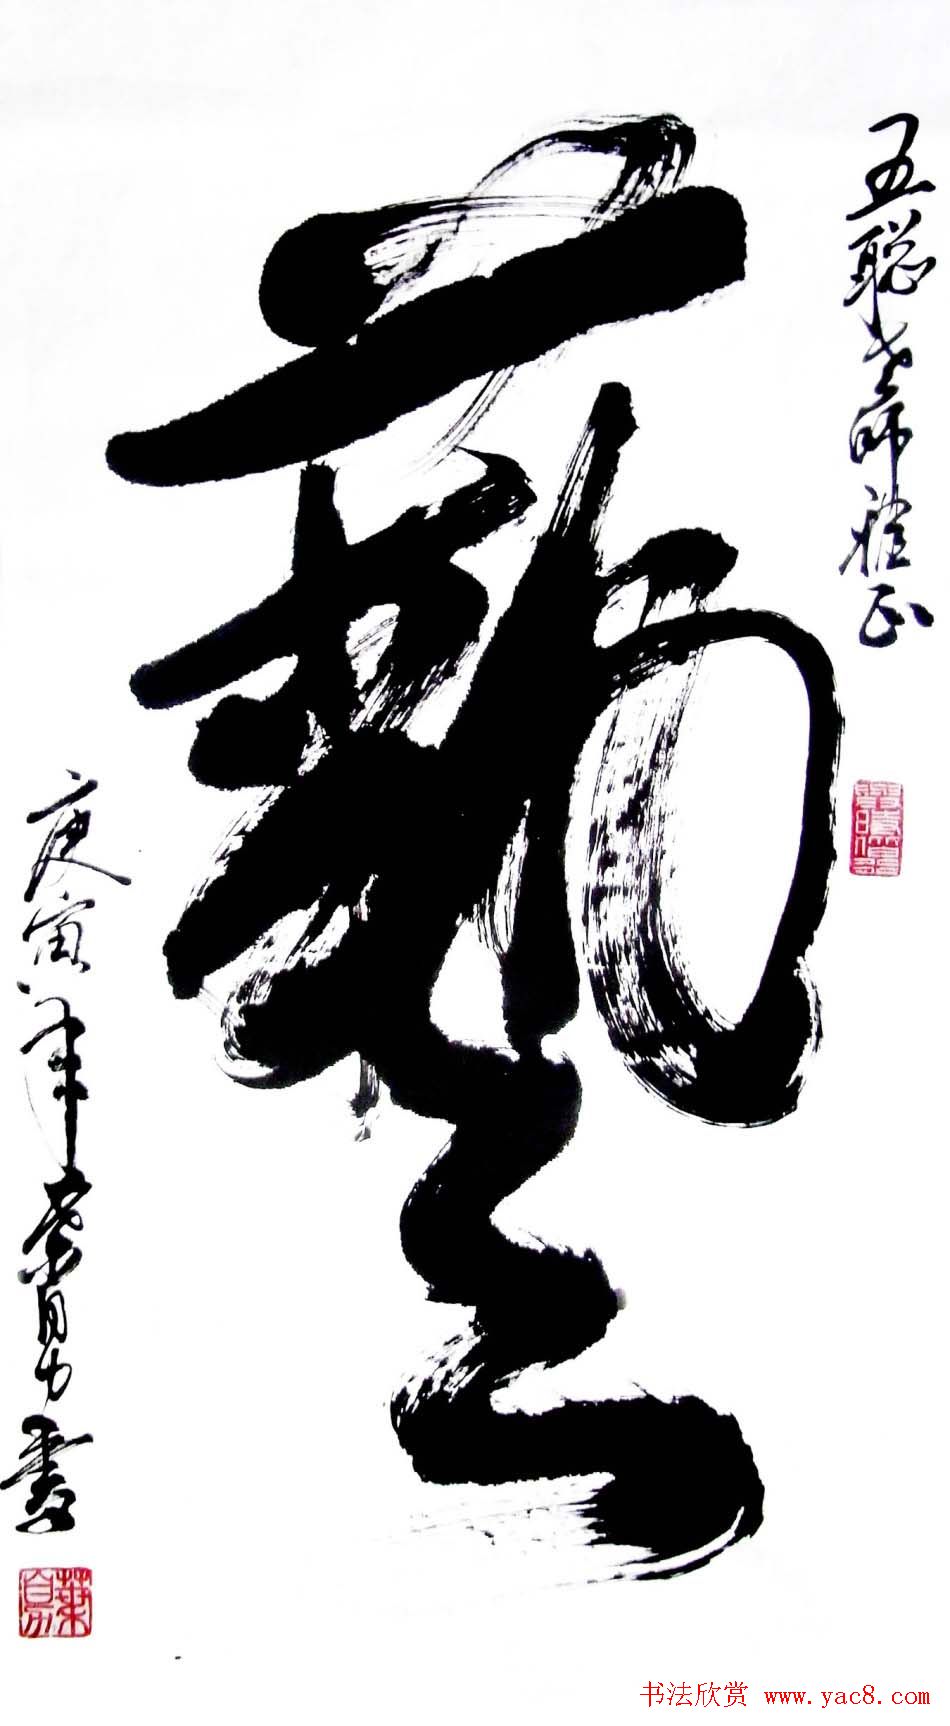 五聪老师雅正
藝
庚寅年葉自力書
书法欣赏 www.yac8.com